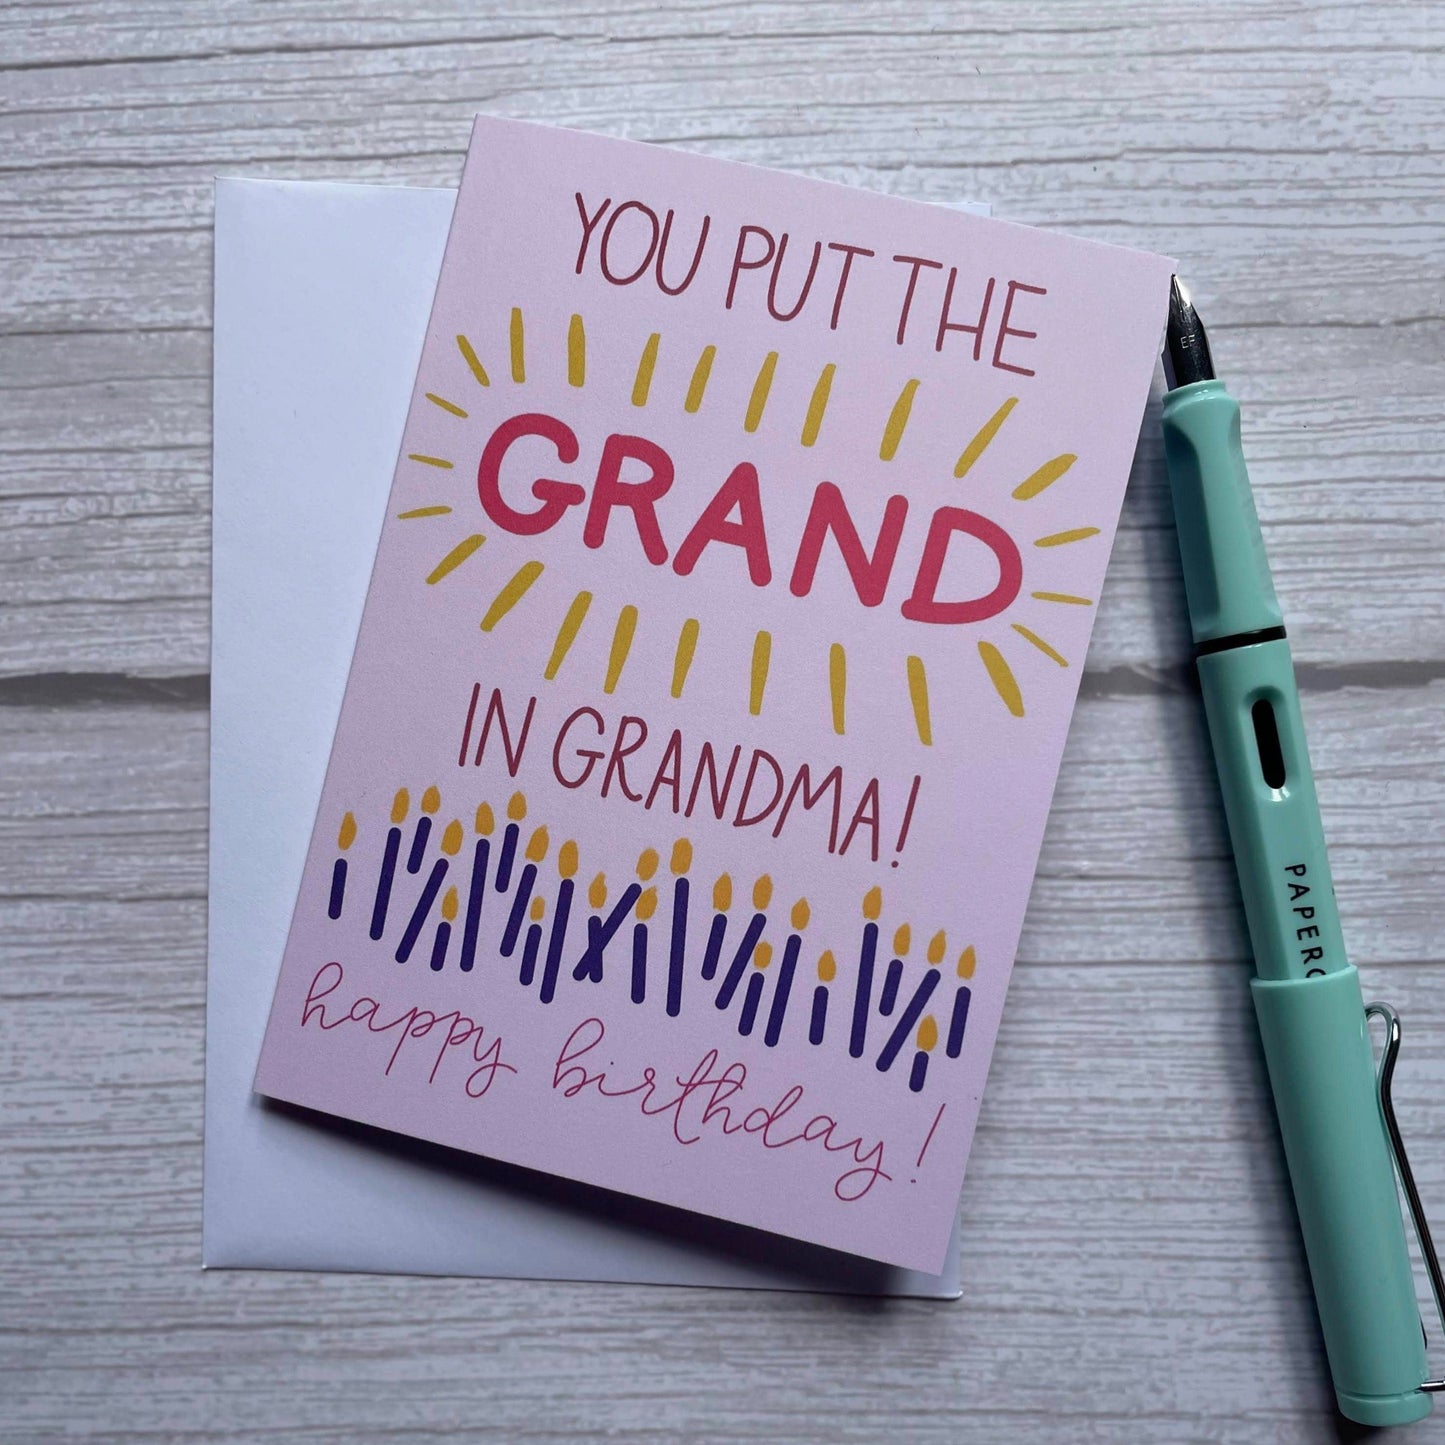 YOU PUT THE
GRAND
IN GRANDMA!
happy birthday!
EF